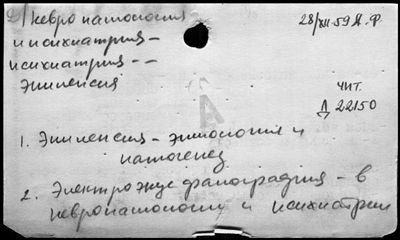 невропатология
и психиатрия –
психиатрия – –
эпилепсия
28/XII-59 Д. Ф.
чит.
Д 22150
1. Эпилепсия – этиология и
патогенез
2. Электроэнцефалография – в
невропатологии и психиатрии